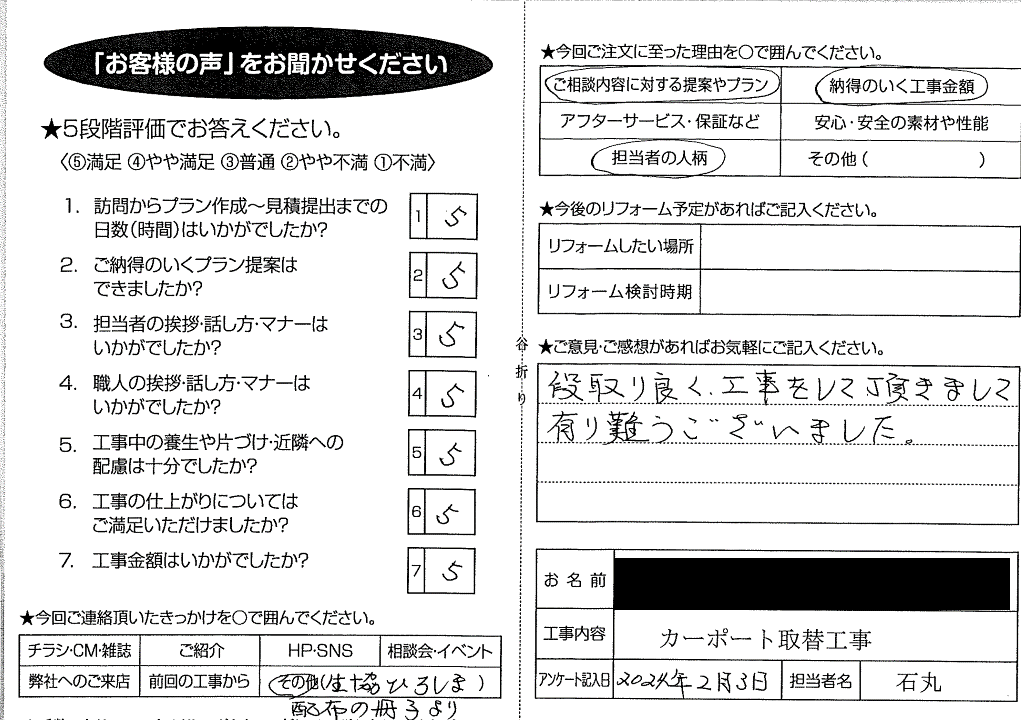 「お客様の声」をお聞かせください
★5段階評価でお答えください。
〈⑤満足 ④やや満足 ③普通 ②やや不満 ①不満〉
1. 訪問からプラン作成～見積提出までの
日数(時間)はいかがでしたか?
1 5
2. ご納得のいくプラン提案は
できましたか?
2 5
3. 担当者の挨拶・話し方・マナーは
いかがでしたか?
3 5
4. 職人の挨拶・話し方・マナーは
いかがでしたか?
4 5
5. 工事中の養生や片づけ・近隣への
配慮は十分でしたか?
5 5
6. 工事の仕上がりについては
ご満足いただけましたか?
6 5
7. 工事金額はいかがでしたか?
7 5
★今回ご連絡頂いたきっかけを○で囲んでください。
チラシ・CM・雑誌 ご紹介 HP・SNS 相談会・イベント
弊社へのご来店 前回の工事から その他(生協ひろしま)
配布の冊子より
谷折り
★今回ご注文に至った理由を○で囲んでください。
ご相談内容に対する提案やプラン 納得のいく工事金額
アフターサービス・保証など 安心・安全の素材や性能
担当者の人柄 その他( )
★今後のリフォーム予定があればご記入ください。
リフォームしたい場所
リフォーム検討時期
★ご意見・ご感想があればお気軽にご記入ください。
段取り良く、工事をして頂きまして
有り難うございました。
お名前
工事内容 カーポート取替工事
アンケート記入日 2024年2月3日 担当者名 石丸